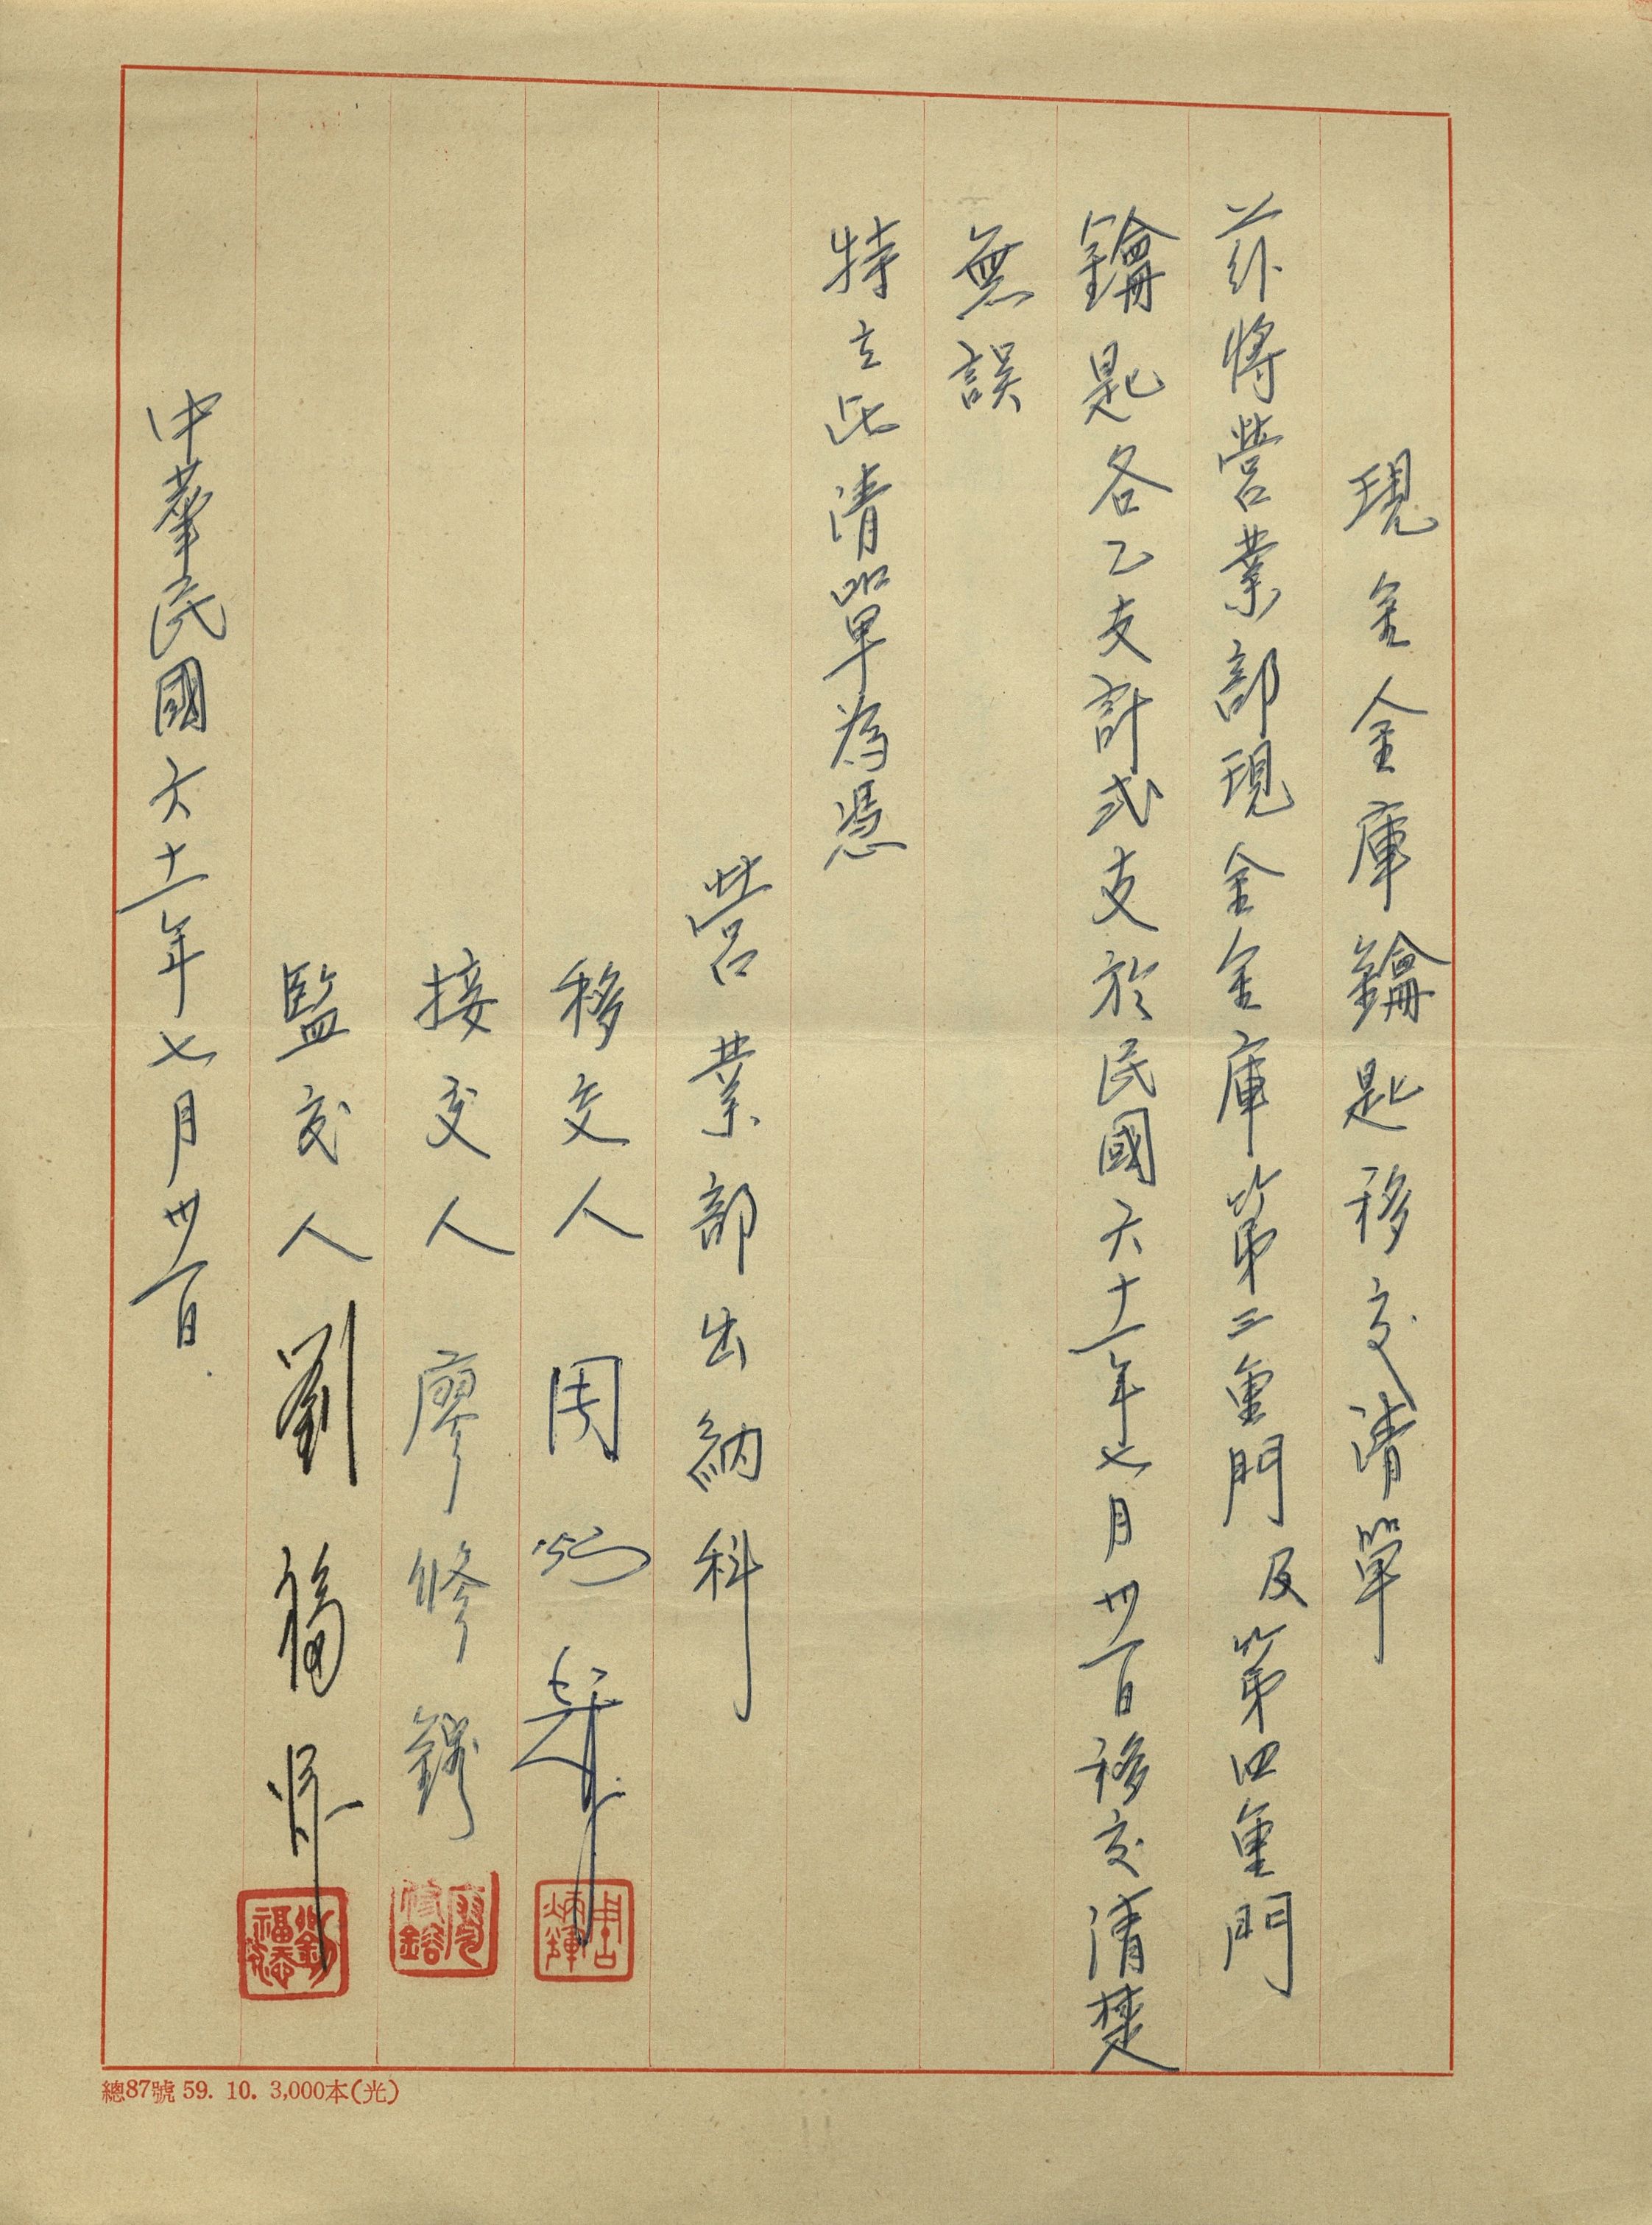 現金金庫鑰匙移交清單
茲將營業部現金金庫第三重門及第四重門
鑰匙各乙支計弍支於民國六十一年七月卅一日移交清楚
無誤
特立此清單為憑
營業部出納科
移交人 周炳輝
周炳輝
接交人 廖修鎔
廖修鎔
監交人 劉福
劉福
中華民國六十一年七月卅一日
總87號 59. 10. 3,000本(光)